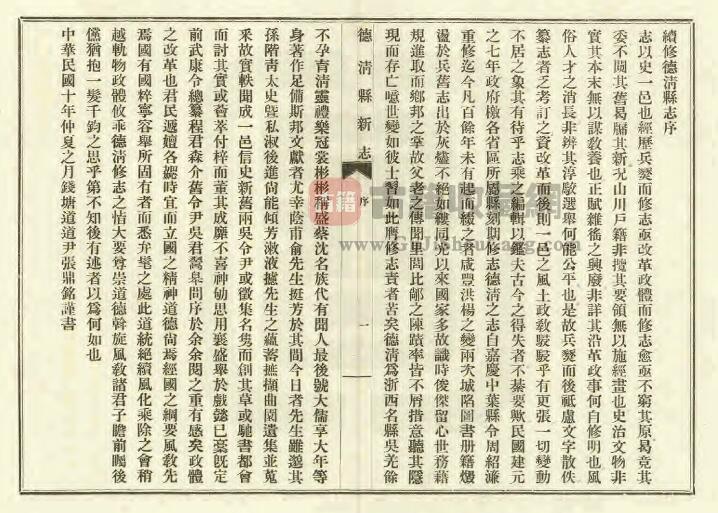 續修德淸縣志序
志以史一邑也經歷兵燹而修志亟改革政體而修志愈亟不窮其原曷竟其
委不聞其舊曷屬其新况山川戶籍非攬其要領無以施經畫也史治文物非
實其本末無以謀敎養也正賦雜徭之興廢非詳其沿革政事何自修明也風
俗人才之消長非辨其淳駁選舉何能公平也是故兵燹而後祇慮文字散佚
纂志者之考訂之資改革而後則一邑之風土政敎駸駸乎有更張一切變動
不居之象其有待乎志乘之編輯以鑑夫古今之得失者不綦要歟民國建元
之七年政府檄各省區所屬縣刻期修志德淸之志自嘉慶中葉縣令周紹濂
重修迄今凡百餘年未有起而綴之者咸豐洪楊之變兩次城陷圖書册籍燬
盪於兵舊志出於灰燼不絕如縷同光以來國家多故識時俊傑留心世務籍
規進取而鄉邦之掌故父老之傳聞里閭比鄰之陳蹟率皆不屑措意聽其隱
現而存亡噫世變如彼士習如此膺修志責者苦矣德淸爲浙西名縣吳羌餘
德淸縣新志
序
一
不孕育淸靈禮樂冠裳彬彬稱盛蔡沈名族代有聞人最後號大儒享大年等
身著作足備斯邦文獻者尤幸蔭甫兪先生挺芳於其間今日者先生雖邈其
孫階靑太史曁私淑後進尙能傾芳漱液摅先生之蘊蓄摭擷曲園遺集並蒐
釆故實軼聞成一邑信史新舊兩吳令尹或徵集名雋而創其草或馳書都會
而討其實或薈萃付梓而董其成靡不喜神劬思用襄盛舉於戲懿已稾旣定
前武康令總纂程君森介舊令尹吳君鬵皋問序於余余閱之重有感矣政體
之改革也君民遞嬗各蹤時宜而立國之精神道德尙焉經國之綱要風敎先
焉國有國粹寧容舉所固有者而悉弁髦之處此道統絕續風化乘除之會稍
越軌物政體攸乖德淸修志之恉大要尊崇道德斡旋風敎諸君子瞻前矚後
儻猶抱一髮千鈞之思乎第不知後有述者以爲何如也
中華民國十年仲夏之月錢塘道道尹張鼎銘謹書